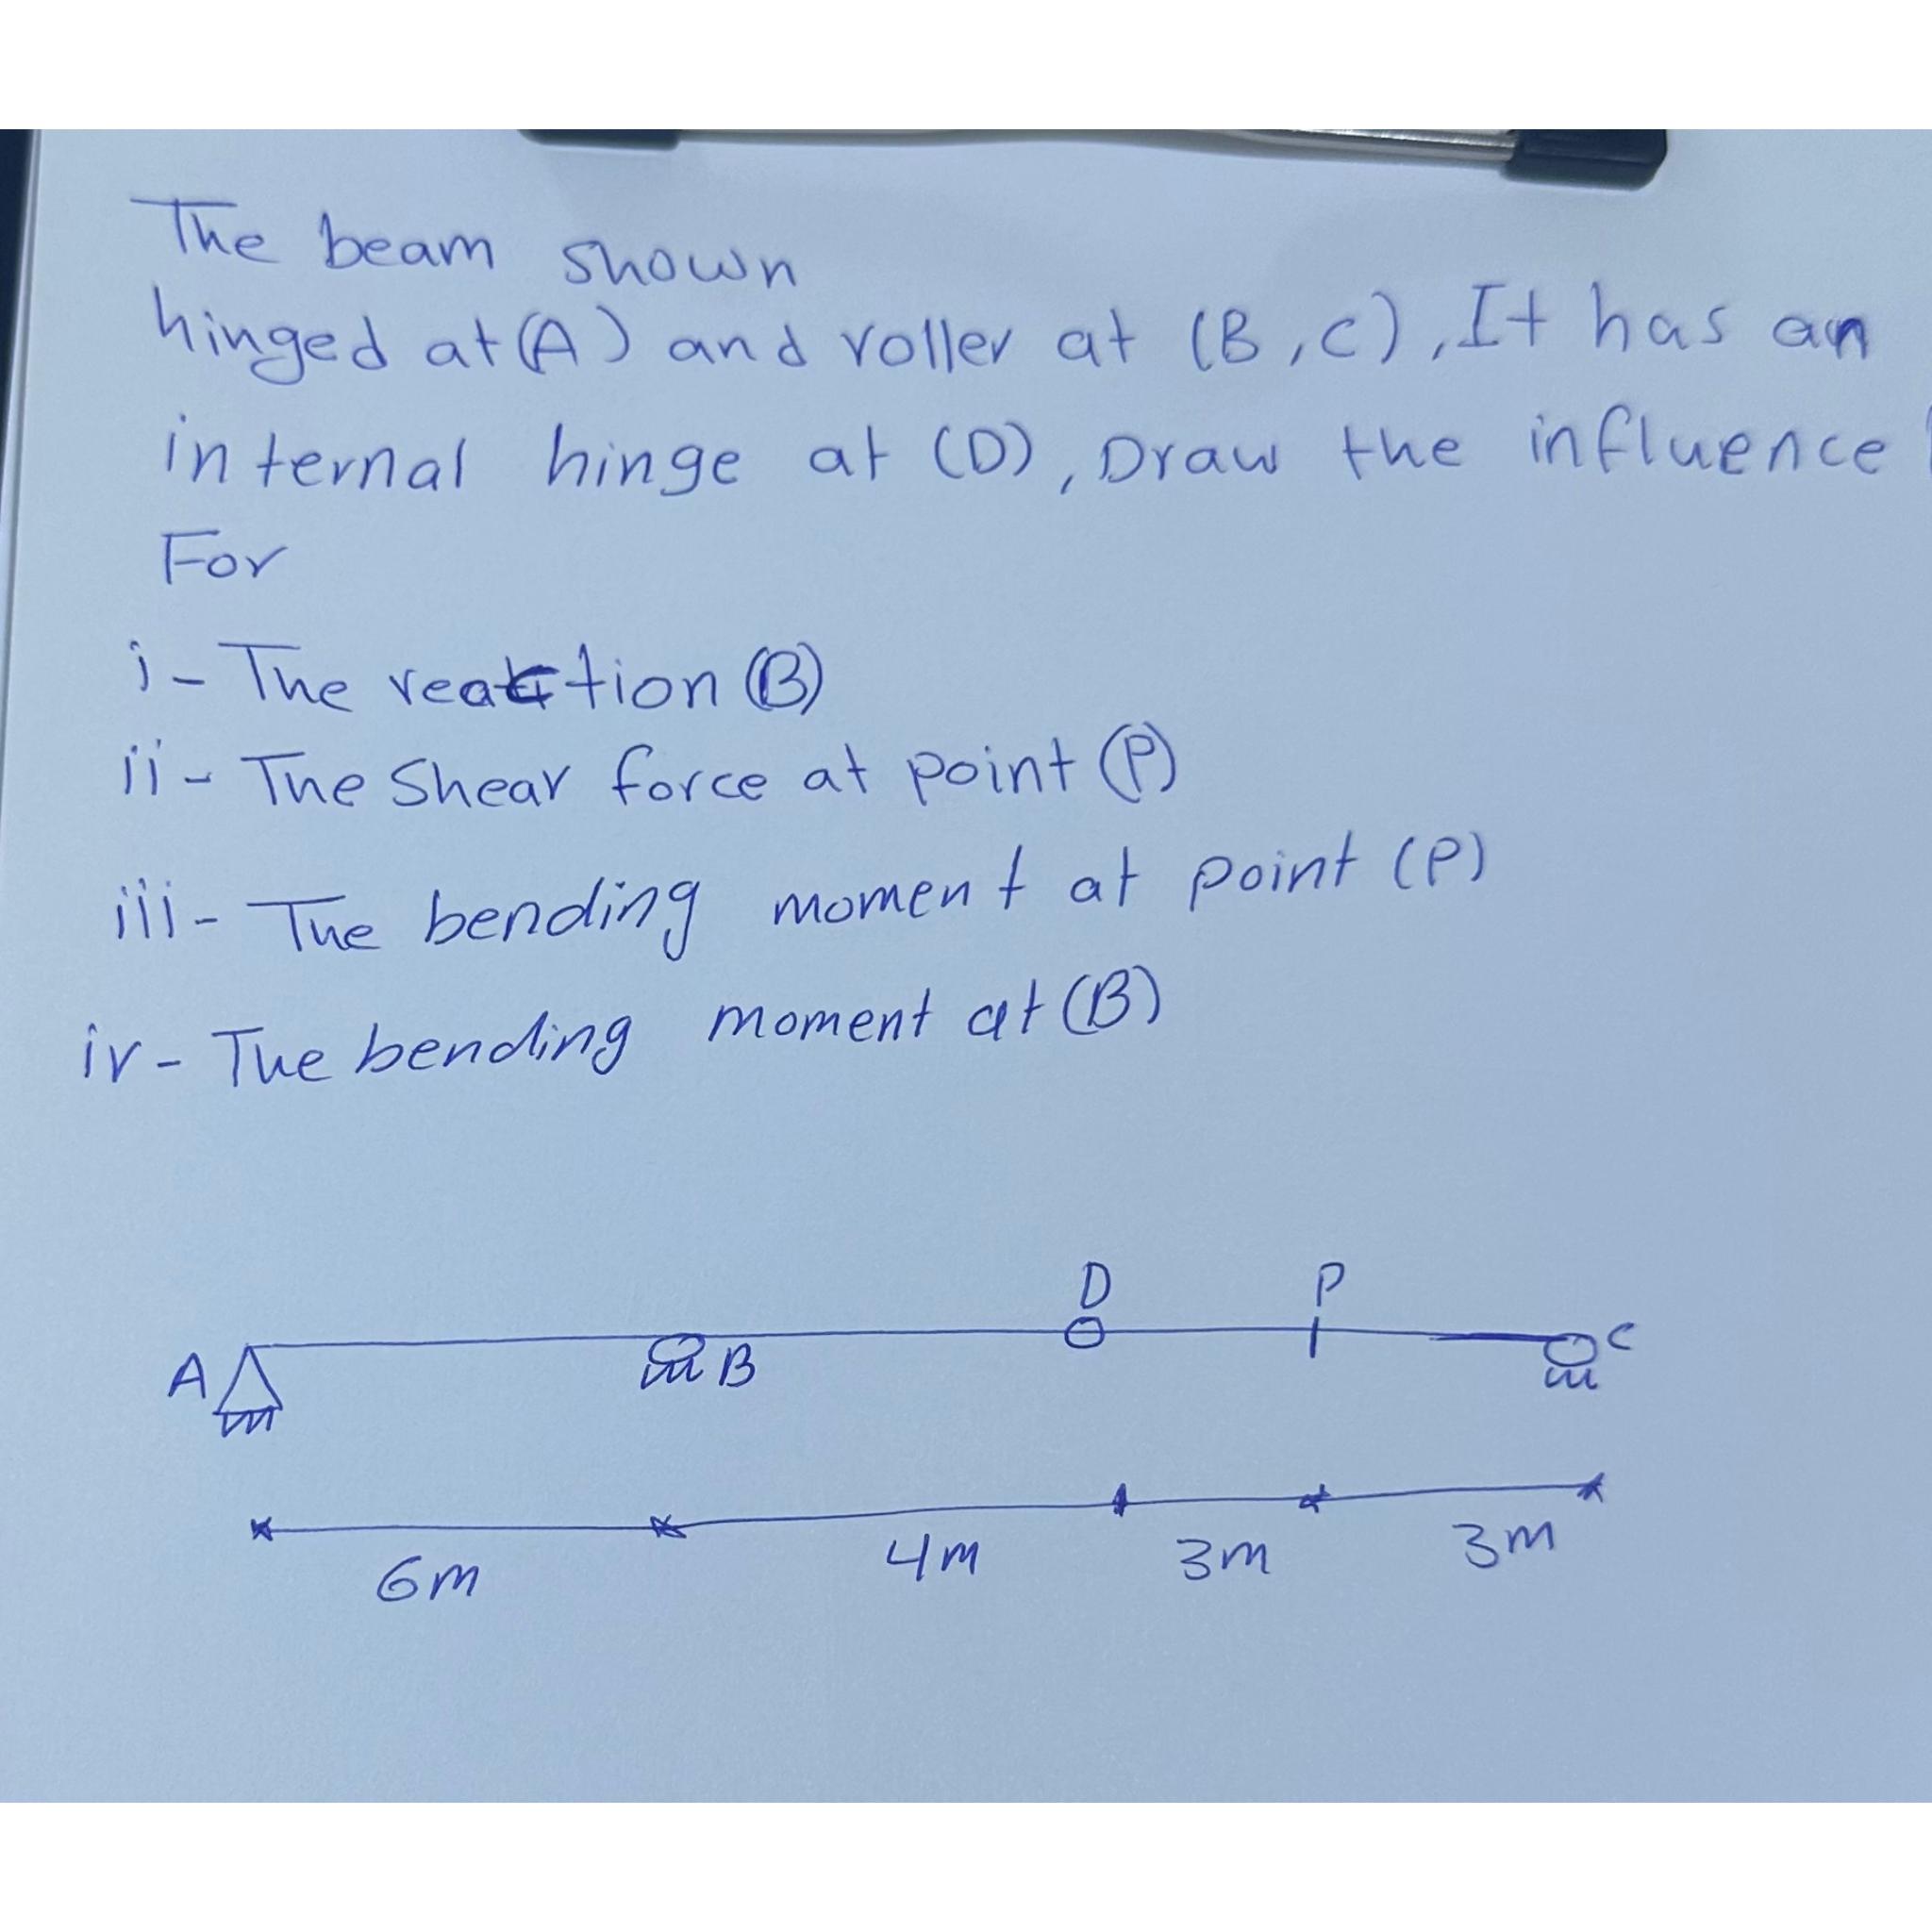 The beam shown
hinged at (A) and roller at (B,C), It has an
internal hinge at (D), Draw the influence
For
i- The reaction (B)
ii- The Shear force at point (P)
iii- The bending moment at point (P)
iv- The bending moment at (B)
D P
A B C
6m 4m 3m 3m